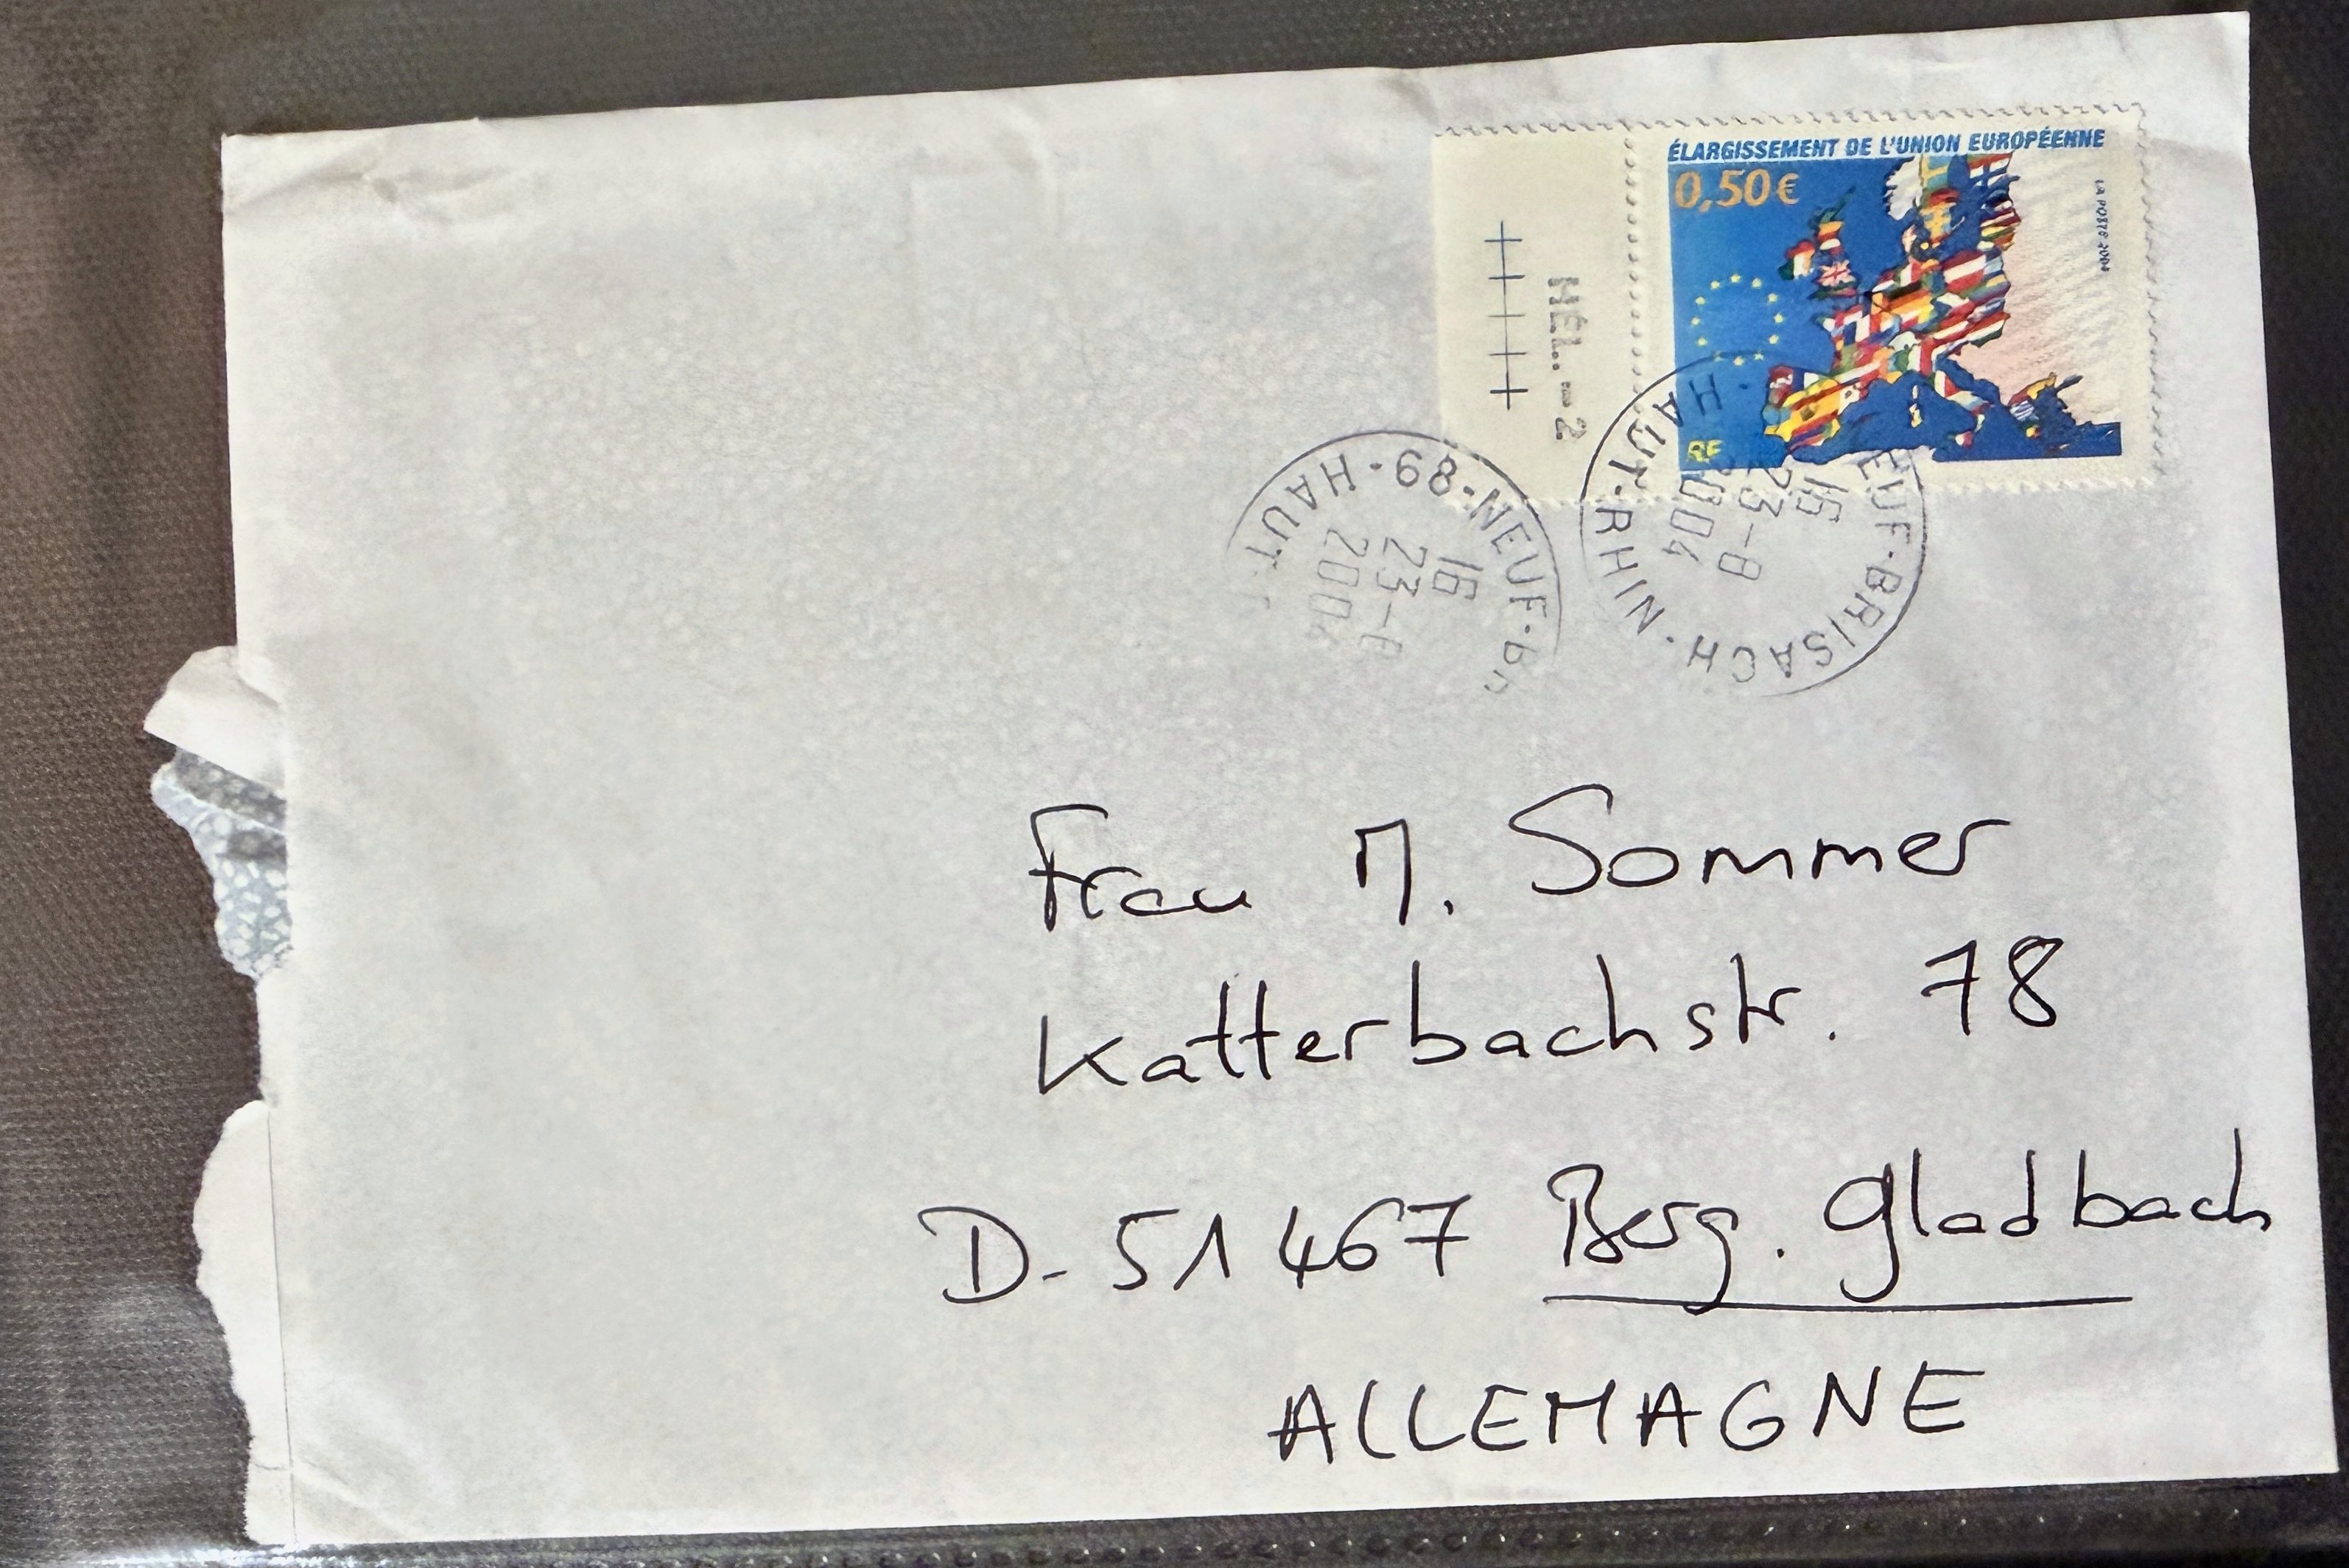 ÉLARGISSEMENT DE L'UNION EUROPÉENNE
0,50€
LA POSTE 2004
RF
HÉL. - 2
68-NEUF- HAUT
16
23-
200
EUF-BRISACH. HAUT-RHIN.
23-8
2004
Frau M. Sommer
Katterbachstr. 78
D-51467 Berg. Gladbach
ALLEMAGNE